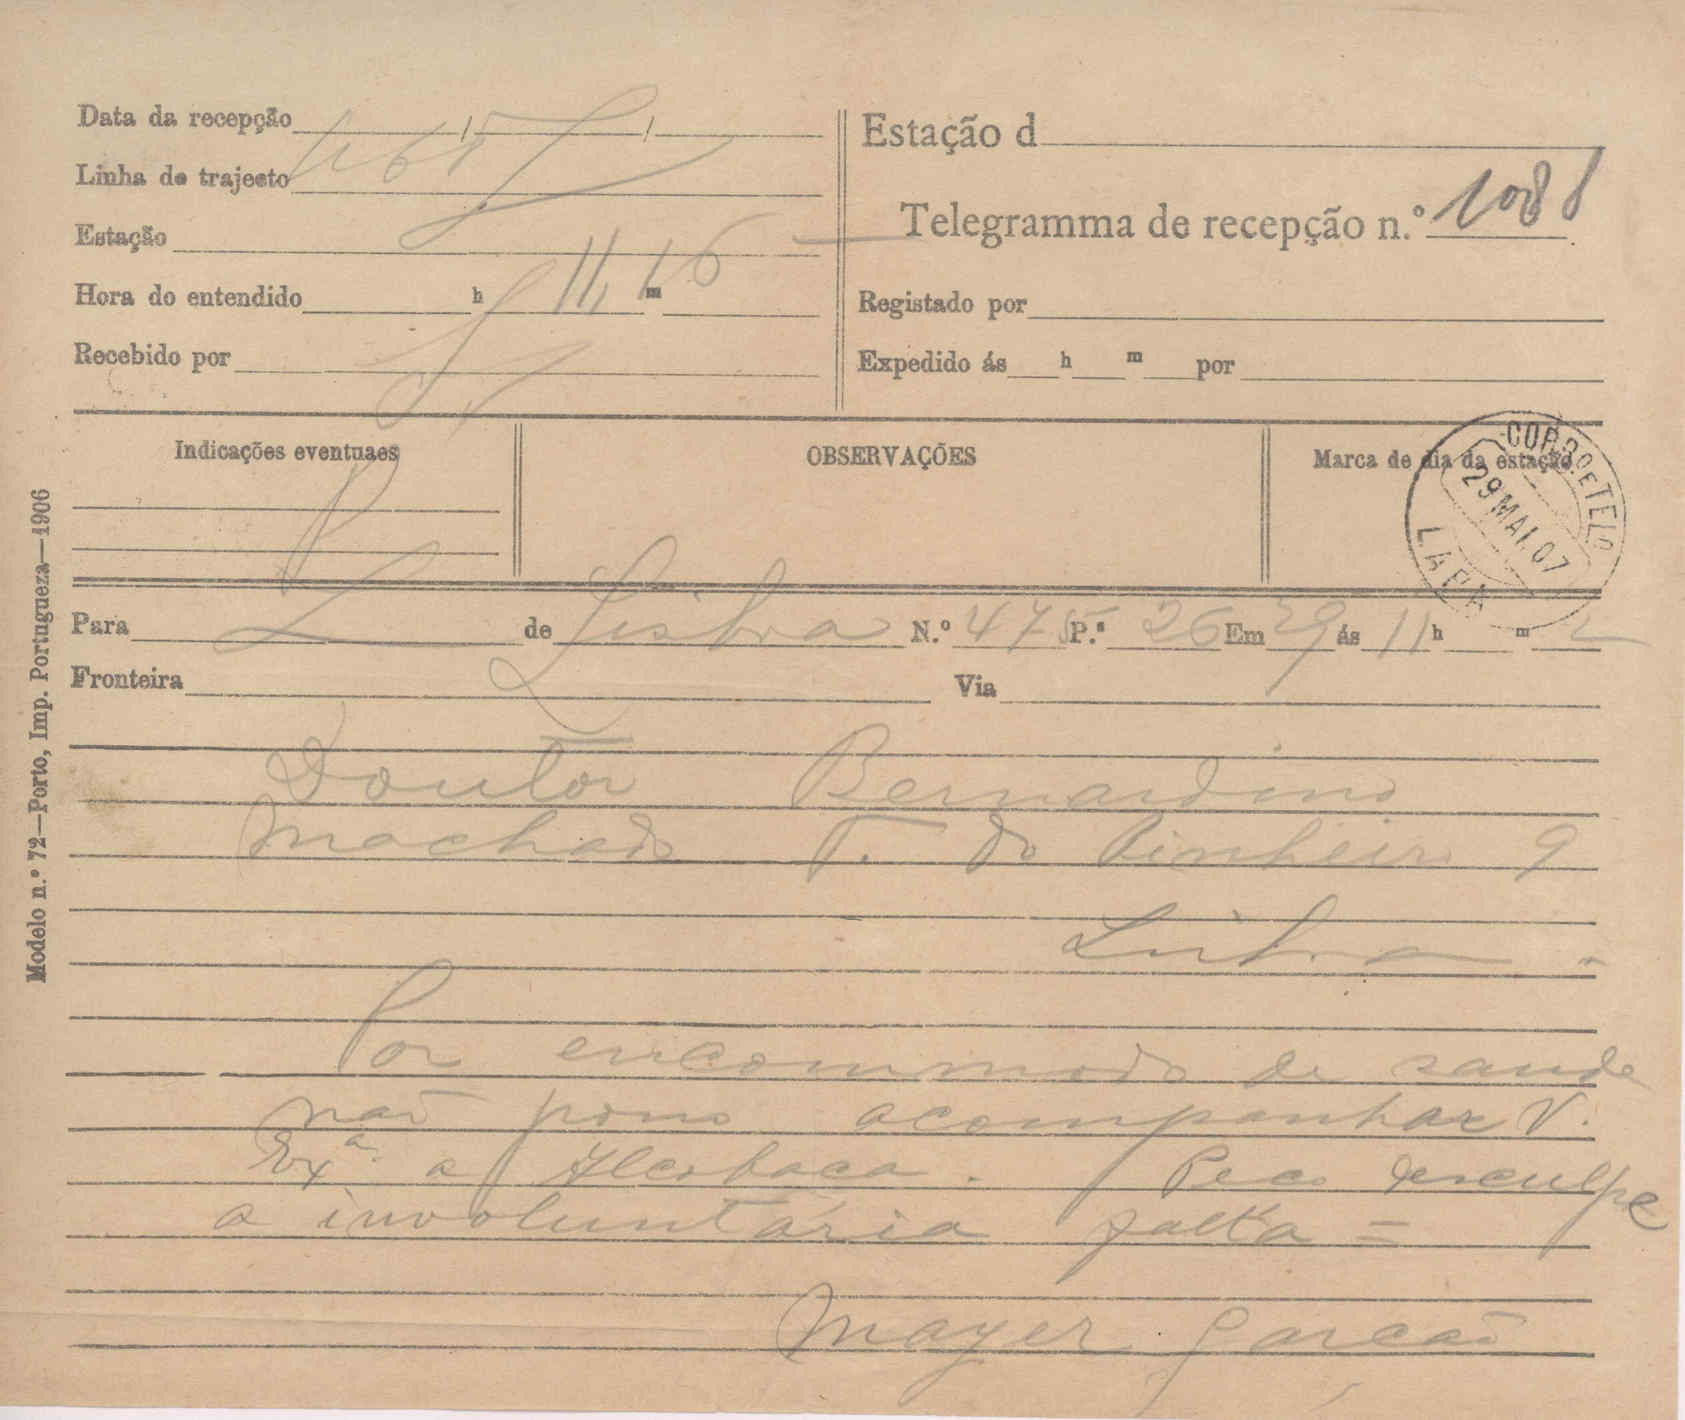 Data da recepção
Linha de trajecto
Estação
Hora do entendido h 11,16 m
Recebido por
Estação d
Telegramma de recepção n.º 1088
Registado por
Expedido ás h m por
Indicações eventuaes
OBSERVAÇÕES
Marca de dia da estação
CORR.º E TELº
29 MAI. 07
LAPA
Para L de Lisboa N.º 475 P.ª 26 Em 29 ás 11 h m 2
Fronteira Via
Doutor Bernardino
Machado T. do Pinheiro 9
Lisboa.
Por encommodo de saude
não posso acompanhar V.
Exª a Alcobaca. Peco desculpe
a involuntária falta =
Mayer Garcão
Modelo n.º 72—Porto, Imp. Portugueza—1906